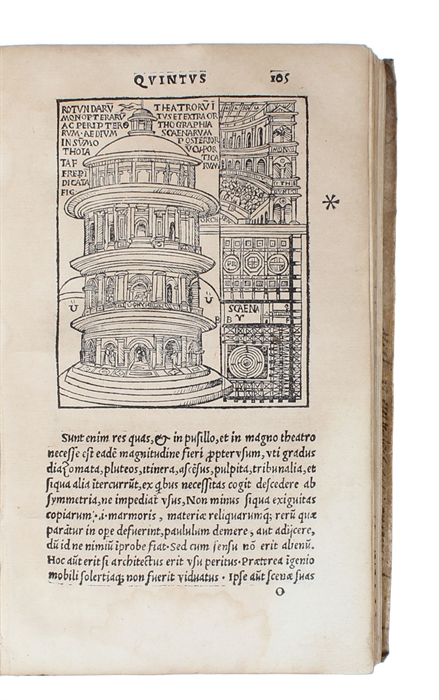 QVINTVS 105
ROTVNDARŪ
MONOPTERARŪ
AC PERIPTERO
RVM · AEDIVM
IN SŪMO
THOIA
TAF
FRE PI
DICATA
FIG
THEATRORV̄ I
TVS ET EXTRA OR
THOGRAPHIA
SCAENARVM
POSTERIOR
PORTI
CA
RVM
SCAENA
B B
Sunt enim res quas, & in pusillo, et in magno theatro
necesse est eadē magnitudine fieri ꝓpter vsum, vti gradus
diaZomata, pluteos, itinera, ascēsus, pulpita, tribunalia, et
siqua alia ītercurrūt, ex qbus necessitas cogit descedere ab
symmetria, ne impediat vsus, Non minus siqua exiguitas
copiarum · i · marmoris, materiæ reliquarumq; rerū quæ
parātur in ope defuerint, paululum demere, aut adijcere,
dū id ne nimiū īprobe fiat · Sed cum sensu nō erit alienū.
Hoc autē erit si architectus erit vsu peritus · Præterea īgenio
mobili solertiaq; non fuerit viduatus · Ipsæ autē scenæ suas
O